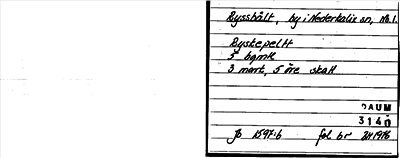 Rysshålt, by i Nederkalix sn, Nb.l.
Ryskepeltt
5 bgmk
3 mört, 5 öre skatt
DAUM
3140
Jb 1597:6 fol br